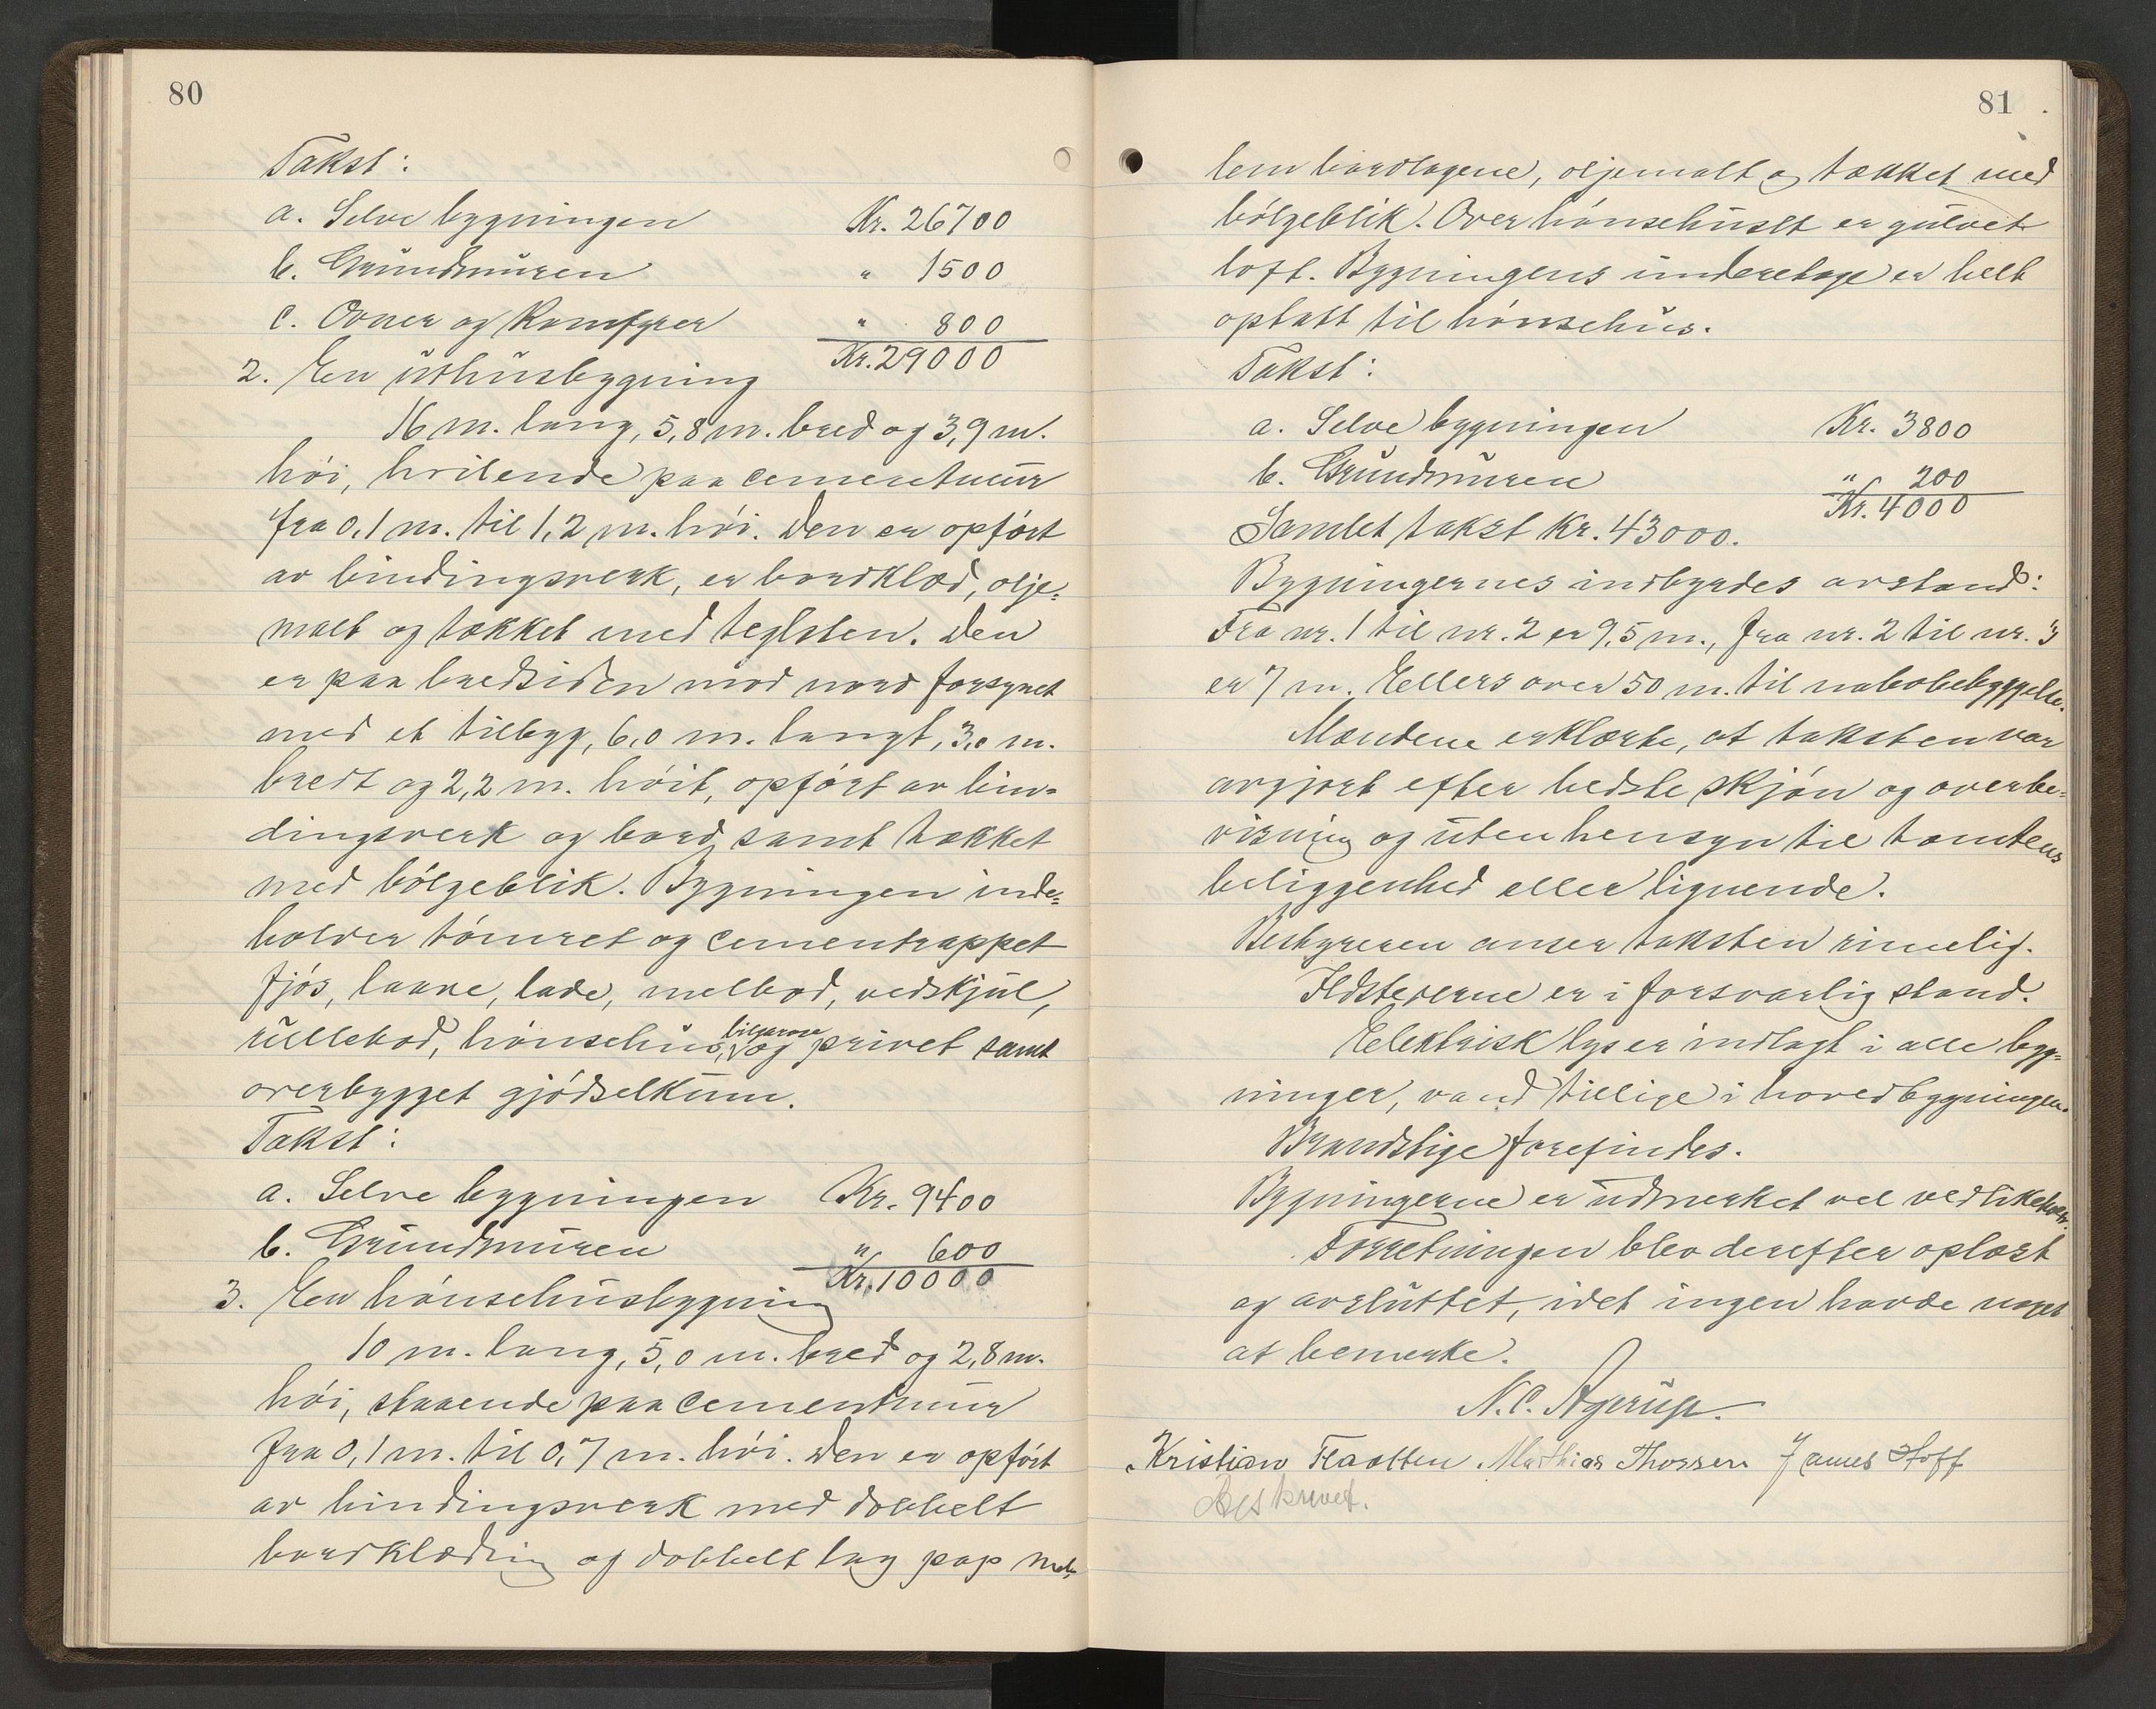 80
Takst:
a. Selve bygningen Kr. 26700
b. Grundmuren " 1500
c. Ovner og Komfyrer " 800
Kr. 29000
2. En uthusbygning
16 m. lang, 5,8 m. bred og 3,9 m.
høi, hvilende paa cementmur
fra 0,1 m. til 1,2 m. høi. Den er opført
av bindingsverk, er bordklæd, olje-
malt og tækket med teglsten. Den
er paa bredsiden mod nord forsynet
med et tilbygg, 6,0 m. langt, 3,0 m.
bredt og 2,2 m. høit, opført av bin-
dingsverk og bord, samt tækket
med bölgeblik. Bygningen inde-
holder tömret og cementrappet
fjös, laave, lade, melbod, vedskjul,
rullebod, hönsehus, bilgarage og privet samt
overbygget gjödselkum.
Takst:
a. Selve bygningen Kr. 9400
b. Grundmuren " 600
Kr. 10000
3. En hönsehusbygning
10 m. lang, 5,0 m. bred og 2,8 m.
høi, staaende paa cementmur
fra 0,1 m. til 0,7 m. høi. Den er opført
av bindingsverk med dobbelt
bordklædning og dobbelt lag pap mel-
81
lem bordlagene, oljemalt og tækket med
bölgeblik. Over hönsehuset er gulvet
loft. Bygningens underetage er helt
optatt til hönsehus.
Takst:
a. Selve bygningen Kr. 3800
b. Grundmuren " 200
Kr. 4000
Samlet takst Kr. 43000.
Bygningernes indbyrdes avstand:
Fra nr. 1 til nr. 2 er 9,5 m., fra nr. 2 til nr. 3
er 7 m. Ellers over 50 m. til nabobebyggelse.
Mændene erklærte, at taksten var
avgjort efter bedste skjön og overbe-
visning og uten hensyn til tomtens
beliggenhed eller lignende.
Bestyreren anser taksten rimelig.
Ildstederne er i forsvarlig stand.
Elektrisk lys er indlagt i alle byg-
ninger, vand tillige i hovedbygningen.
Brandstige forefindes.
Bygningerne er udmerket vel vedlikeholdt.
Forretningen blev derefter oplæst
og avsluttet, idet ingen havde noget
at bemerke.
N. C. Agerup.
Kristian Flaatten Mathias Thorsen James Hoff
Beskrevet.